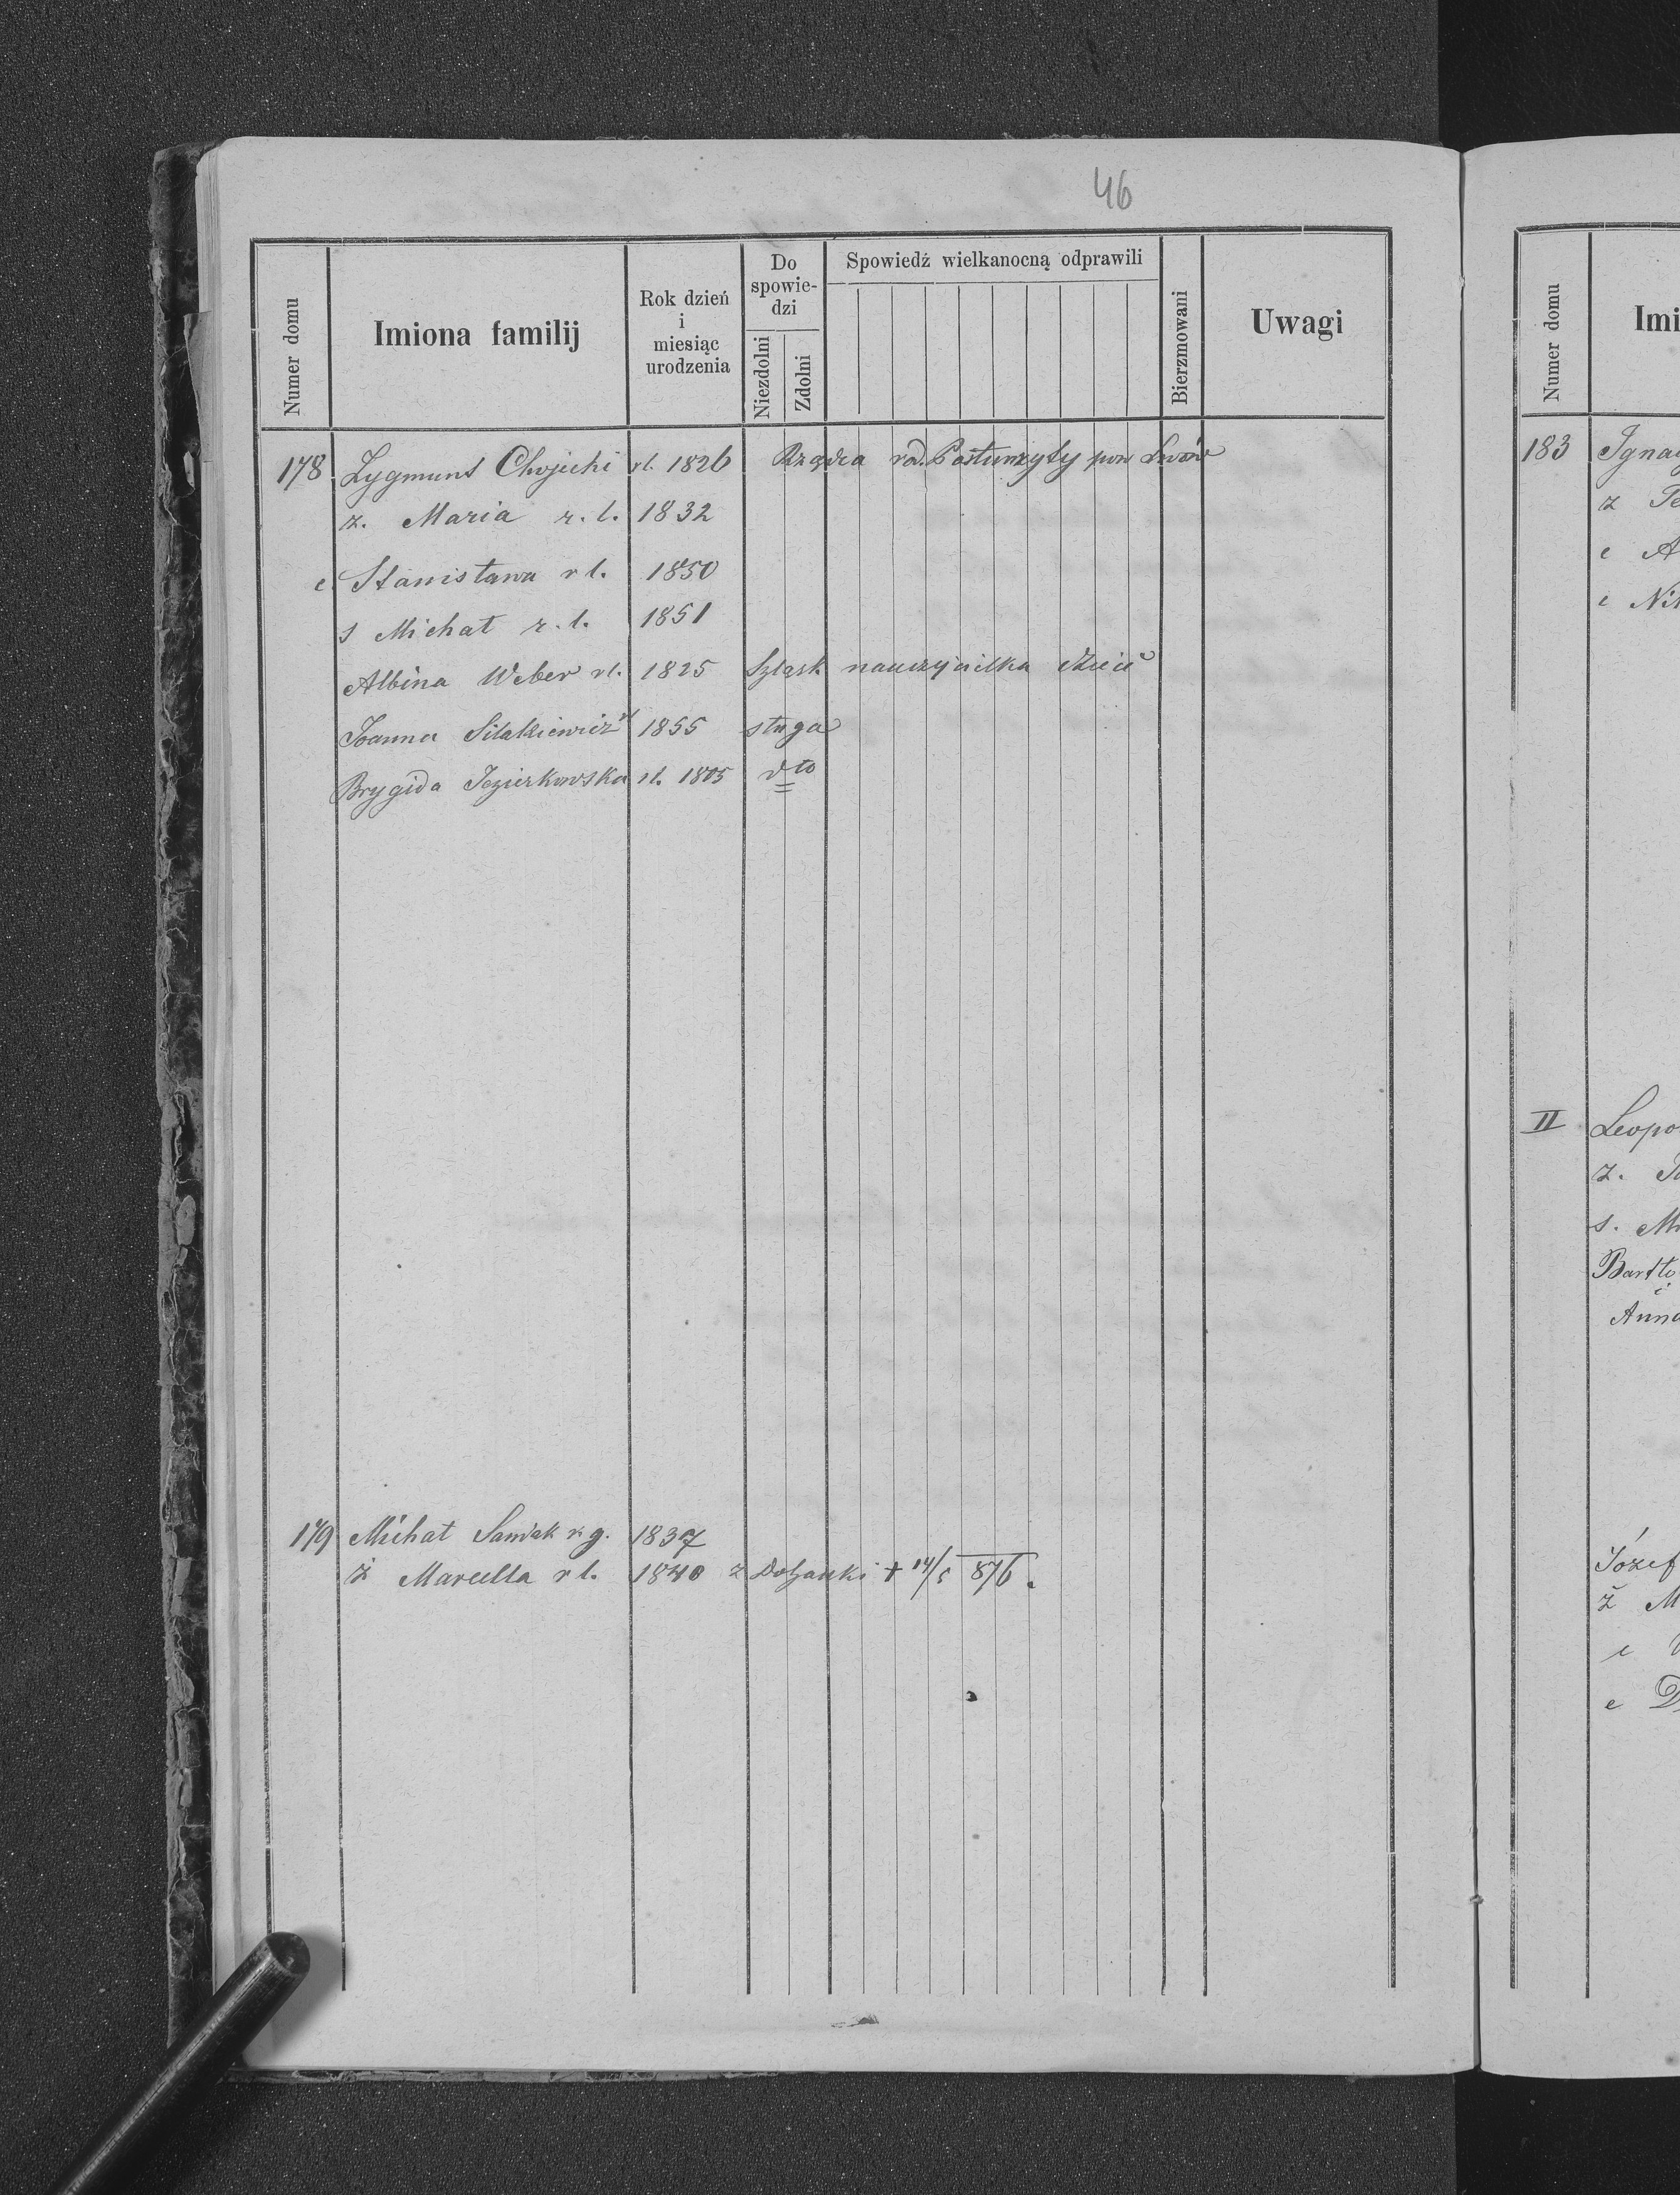 46
Numer domu
Imiona familij
Rok dzień
i
miesiąc
urodzenia
Do
spowie-
dzi
Niezdolni
Zdolni
Spowiedź wielkanocną odprawili
Bierzmowani
Uwagi
178 Zygmunt Chojecki rl. 1826 Rządca rod. Postunzyty pow Lwów
z. Maria r. l. 1832
c. Stanisława r l. 1850
s Michał r. l. 1851
Albina Weber rl. 1825 Szląsk nauczycilka dzieci
Joanna rl 1855 sługa
Brygida Jezierkowska rl. 1805 dto
179 Michał Sawiak r. g. 1837
ż Marcella r l. 1840 z Dołżanki + 14/5 876.
Numer domu
Imi
183 Ignac
z Te
c A
c Nik
II Leopo
z.
s. Mi
Bartło
i
Anna
Józef
ż M
c
c D